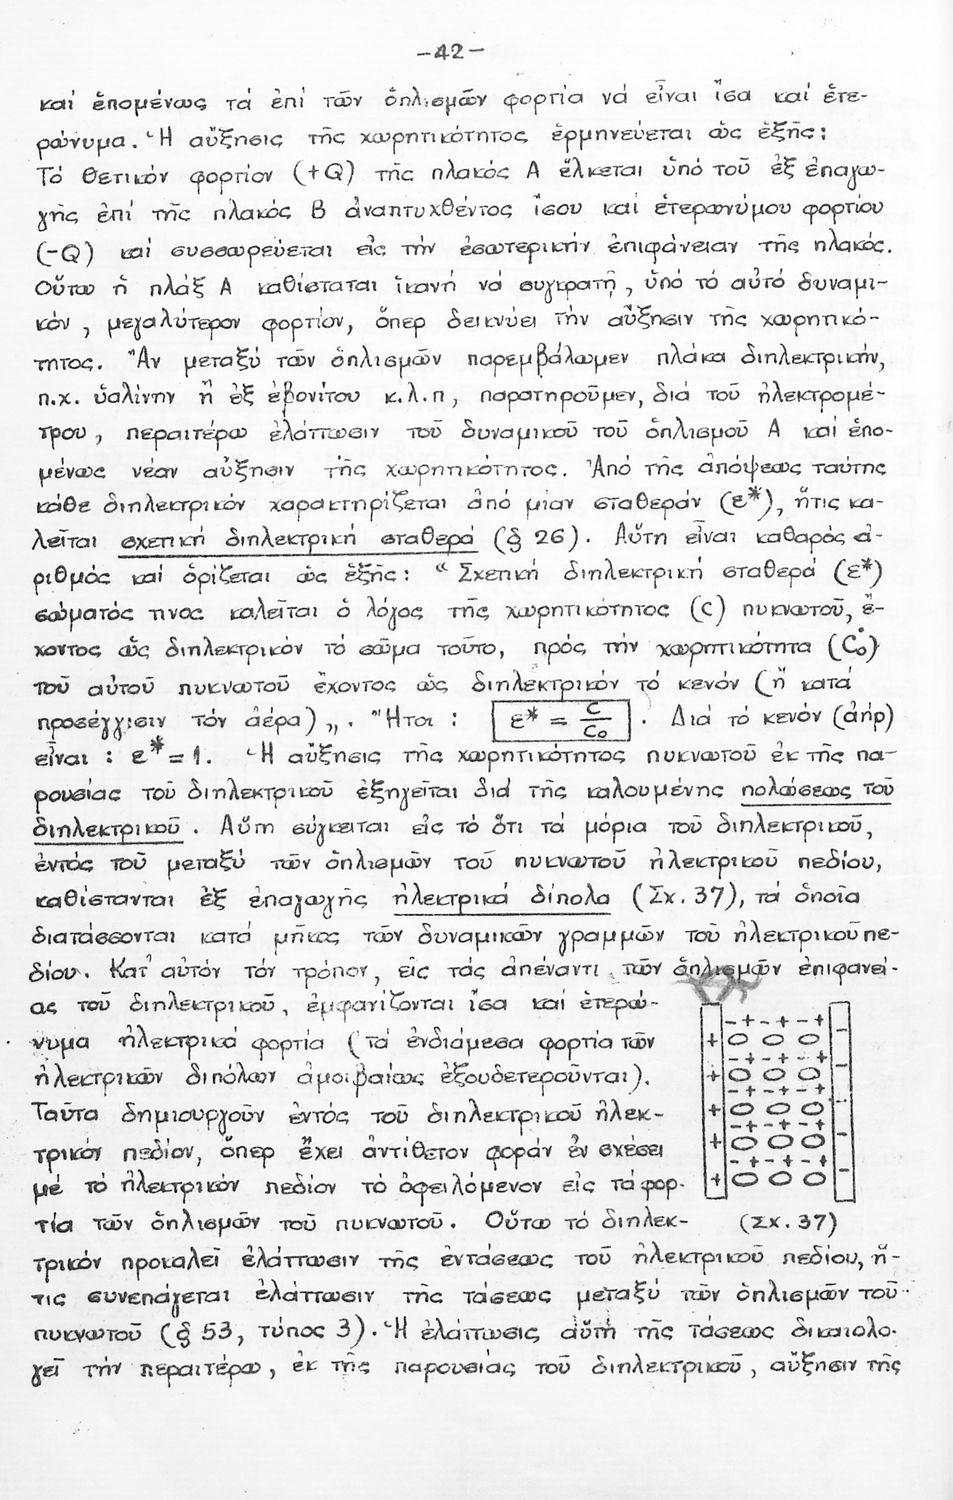 -42-
καί ἑπομένως τά ἐπί τῶν ὁπλισμῶν φορτία νά εἶναι ἴσα καί ἑτε-
ρώνυμα. Ἡ αὔξησις τῆς χωρητικότητος ἑρμηνεύεται ὡς ἑξῆς:
Τό θετικόν φορτίον (+Q) τῆς πλακός Α ἕλκεται ὑπό τοῦ ἐξ ἐπαγω-
γῆς ἐπί τῆς πλακός Β ἀναπτυχθέντος ἴσου καί ἑτερωνύμου φορτίου
(-Q) καί συσσωρεύεται εἰς τήν ἐσωτερικήν ἐπιφάνειαν τῆς πλακός.
Οὕτω ἡ πλάξ Α καθίσταται ἱκανή νά συγκρατῇ, ὑπό τό αὐτό δυναμι-
κόν, μεγαλύτερον φορτίον, ὅπερ δεικνύει τήν αὔξησιν τῆς χωρητικό-
τητος. Ἄν μεταξύ τῶν ὁπλισμῶν παρεμβάλωμεν πλάκα διηλεκτρικήν,
π.χ. ὑαλίνην ἤ ἐξ ἐβονίτου κ.λ.π, παρατηροῦμεν, διά τοῦ ἠλεκτρομέ-
τρου, περαιτέρω ἐλάττωσιν τοῦ δυναμικοῦ τοῦ ὁπλισμοῦ Α καί ἑπο-
μένως νέαν αὔξησιν τῆς χωρητικότητος. Ἀπό τῆς ἀπόψεως ταύτης
κάθε διηλεκτρικόν χαρακτηρίζεται ἀπό μίαν σταθεράν (ε*), ἥτις κα-
λεῖται σχετική διηλεκτρική σταθερά (§ 26). Αὕτη εἶναι καθαρός ἀ-
ριθμός καί ὁρίζεται ὡς ἑξῆς: “ Σχετική διηλεκτρική σταθερά (ε*)
σώματός τινος καλεῖται ὁ λόγος τῆς χωρητικότητος (C) πυκνωτοῦ, ἔ-
χοντος ὡς διηλεκτρικόν τό σῶμα τοῦτο, πρός τήν χωρητικότητα (C₀)
τοῦ αὐτοῦ πυκνωτοῦ ἔχοντος ὡς διηλεκτρικόν τό κενόν (ἤ κατά
προσέγγισιν τόν ἀέρα) „. Ἤτοι : ε* = C/C₀ . Διά τό κενόν (ἀήρ)
εἶναι : ε* = 1. Ἡ αὔξησις τῆς χωρητικότητος πυκνωτοῦ ἐκ τῆς πα-
ρουσίας τοῦ διηλεκτρικοῦ ἐξηγεῖται διά τῆς καλουμένης πολώσεως τοῦ
διηλεκτρικοῦ. Αὕτη σύγκειται εἰς τό ὅτι τά μόρια τοῦ διηλεκτρικοῦ,
ἐντός τοῦ μεταξύ τῶν ὁπλισμῶν τοῦ πυκνωτοῦ ἠλεκτρικοῦ πεδίου,
καθίστανται ἐξ ἐπαγωγῆς ἠλεκτρικά δίπολα (Σχ. 37), τά ὁποῖα
διατάσσονται κατά μῆκος τῶν δυναμικῶν γραμμῶν τοῦ ἠλεκτρικοῦ πε-
δίου. Κατ' αὐτόν τόν τρόπον, εἰς τάς ἀπέναντι τῶν ὁπλισμῶν ἐπιφανεί-
ας τοῦ διηλεκτρικοῦ, ἐμφανίζονται ἴσα καί ἑτερώ-
νυμα ἠλεκτρικά φορτία (τά ἐνδιάμεσα φορτία τῶν
ἠλεκτρικῶν διπόλων ἀμοιβαίως ἐξουδετεροῦνται).
Ταῦτα δημιουργοῦν ἐντός τοῦ διηλεκτρικοῦ ἠλεκ-
τρικόν πεδίον, ὅπερ ἔχει ἀντίθετον φοράν ἐν σχέσει
μέ τό ἠλεκτρικόν πεδίον τό ὀφειλόμενον εἰς τά φορ-
τία τῶν ὁπλισμῶν τοῦ πυκνωτοῦ. Οὕτω τό διηλεκ-
(Σχ. 37)
τρικόν προκαλεῖ ἐλάττωσιν τῆς ἐντάσεως τοῦ ἠλεκτρικοῦ πεδίου, ἥ-
τις συνεπάγεται ἐλάττωσιν τῆς τάσεως μεταξύ τῶν ὁπλισμῶν τοῦ
πυκνωτοῦ (§ 53, τύπος 3). Ἡ ἐλάττωσις αὐτή τῆς τάσεως δικαιολο-
γεῖ τήν περαιτέρω, ἐκ τῆς παρουσίας τοῦ διηλεκτρικοῦ, αὔξησιν τῆς